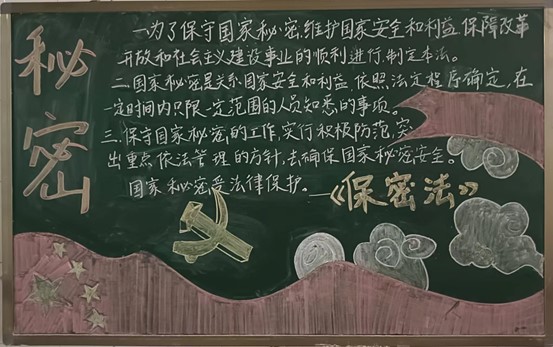 秘密
一.为了保守国家秘密,维护国家安全和利益,保障改革
开放和社会主义建设事业的顺利进行,制定本法。
二.国家秘密是关系国家安全和利益,依照法定程序确定,在
一定时间内只限一定范围的人员知悉的事项。
三.保守国家秘密的工作,实行积极防范,突
出重点,依法管理的方针,去确保国家秘密安全。
国家秘密受法律保护。
——《保密法》